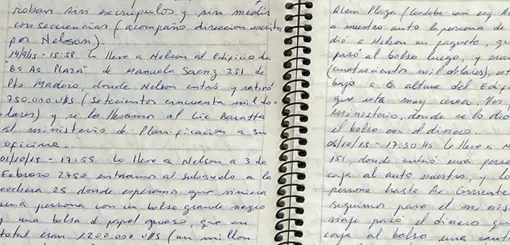 roban sin escrúpulos y sin medir
consecuencias (acompaño dirección escrita
por Nelson).
14/9/15 - 15:58 Lo lleve a Nelson al Edificio de
"Bs As PLAZA" de Manuela Saenz 351 de
Pto Madero, donde Nelson entró y retiró
750.000 U$S (setecientos cincuenta mil do-
lares) y se lo llevamos al Lic Baratta
al ministerio de Planificacion a su
oficina.
01/10/15 - 17:55 Lo lleve a Nelson a 3 de
Febrero 2750 entramos al subsuelo a la
cochera 25 donde esperamos que viniera
una persona con un bolso grande negro
y una bolsa d papel grueso, que en
total eran 1.200.000 U$S (un millon
Alem Plaza (Cordoba
a nuestro auto la persona de
dió a Nelson un paquete, que
pasó al bolso luego, y eran
(cuatrocientos mil dolares),
bajo a la altura del Edif
que esta muy cerca.
Ministerio, donde se lo dio
el bolso con el dinero.
- 17:30 Hs Lo lleve a
151, donde subió una persona
caja al auto nuestro, y
persona hasta Av Corrientes
seguimos para el
viaje pasó el dinero que
caja al bolso una